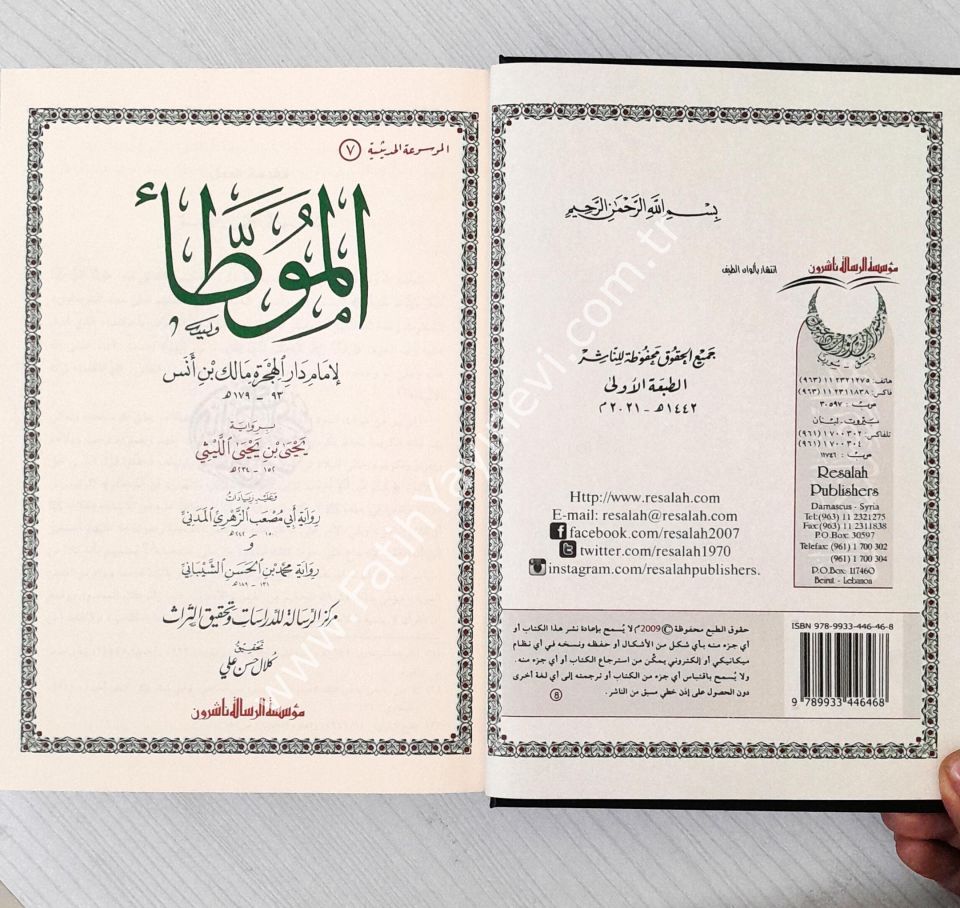 بِسْمِ اللَّهِ الرَّحْمَٰنِ الرَّحِيمِ
مؤسسة الرسالة ناشرون
انتشار بألوان الطيف
هاتف: ١١٢٣٢١٢٧٥ (٩٦٣)
فاكس: ١١٢٣١١٨٣٨ (٩٦٣)
ص.ب: ٣٠٥٩٧
بيروت - لبنان
تلفاكس: ٧٠٠٣٠٢ ١ (٩٦١)
٧٠٠٣٠٤ ١ (٩٦١)
ص.ب: ١١٧٤٦٠
Resalah
Publishers
Damascus - Syria
Tel:(963) 11 2321275
Fax:(963) 11 2311838
P.O.Box: 30597
Telefax: (961) 1 700 302
(961) 1 700 304
P.O.Box: 117460
Beirut - Lebanon
جميع الحقوق محفوظة للناشر
الطبعة الأولى
١٤٤٢هـ - ٢٠٢١م
Http://www.resalah.com
E-mail: resalah@resalah.com
facebook.com/resalah2007
twitter.com/resalah1970
instagram.com/resalahpublishers.
حقوق الطبع محفوظة © 2009م لا يُسمح بإعادة نشر هذا الكتاب أو
أي جزء منه بأي شكل من الأشكال أو حفظه ونسخه في أي نظام
ميكانيكي أو إلكتروني يمكّن من استرجاع الكتاب أو أي جزء منه.
ولا يُسمح باقتباس أي جزء من الكتاب أو ترجمته إلى أي لغة أخرى
دون الحصول على إذن خطي مسبق من الناشر.
8
ISBN 978-9933-446-46-8
9 789933 446468
الموسوعة الحديثية ٧
المُوَطَّأ
لإمام دار الهجرة مالك بن أنس
٩٣ - ١٧٩هـ
برواية
يحيى بن يحيى الليثي
١٥٢ - ٢٣٤هـ
وعليه زيادات
رواية أبي مصعب الزهري المدني
١٥٠ - ٢٤٢هـ
و
رواية محمد بن الحسن الشيباني
١٣١ - ١٨٩هـ
مركز الرسالة للدراسات وتحقيق التراث
تحقيق
كلال حسن علي
مؤسسة الرسالة ناشرون
www.FatihYayinevi.com.tr